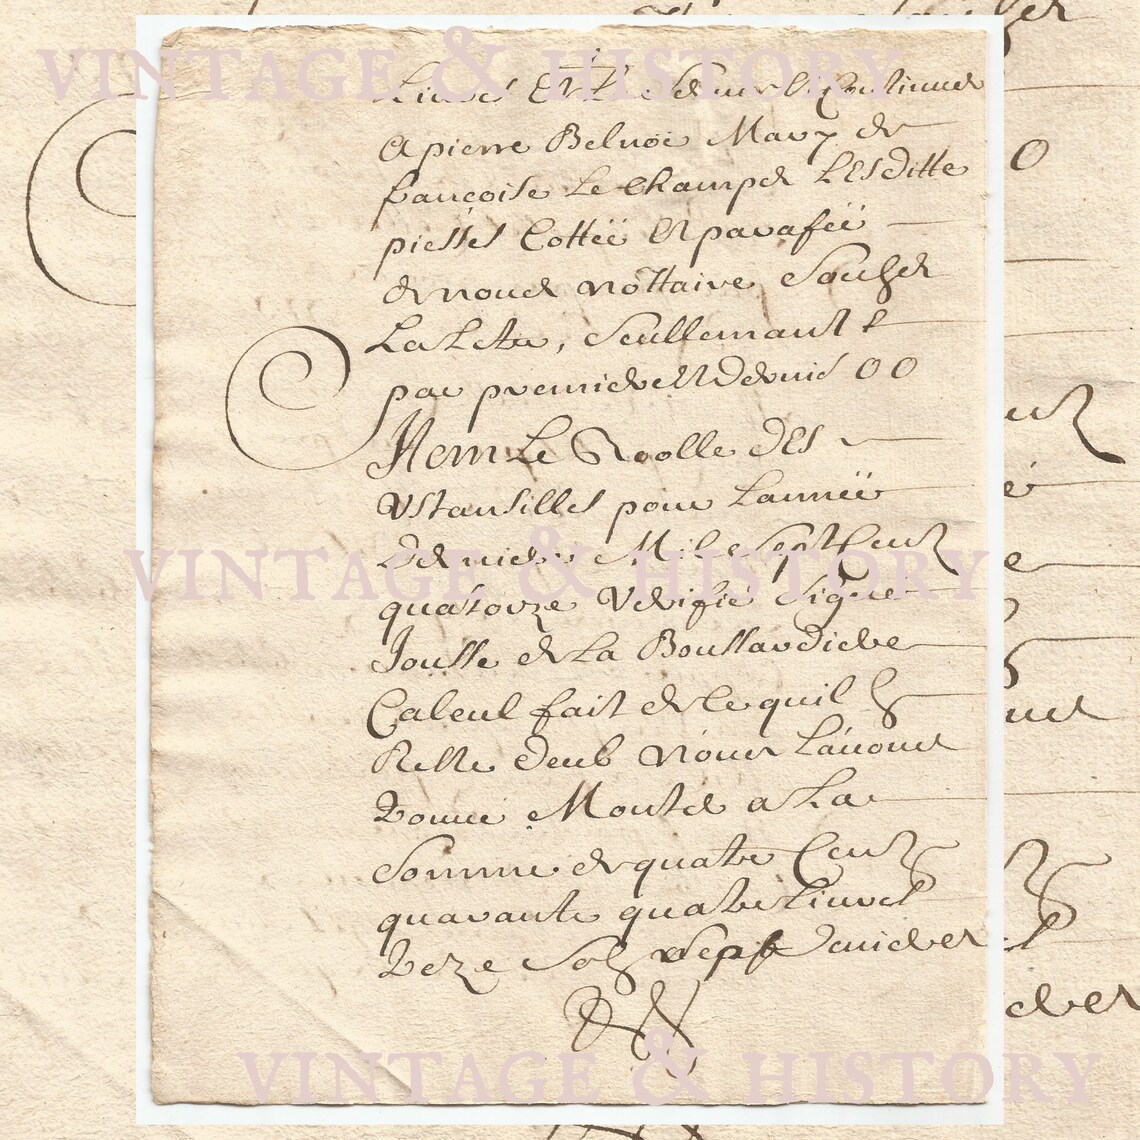 VINTAGE & HISTORY
Liures Et Le Continuer
a pierre Beluoë Mary de
francoise Le Champer LEsditte
piesses Cottëe Et parafëe
de nouer nottaire
La Lettre, seullemant
par premiere Et Derniere 00
Item Le Roolle dEs
Vstansilles pour Lannëe
Derniere Mil Sept Cent
quatorze Verifie Signe
Jousse de La Boussardiere
Calcul fait de ce quil
Reste deub nous Lauons
Trouué Monter a La
Somme de quatre Cent
quarante quatre Liures
Treze Solz sept Deniers
VINTAGE & HISTORY
VINTAGE & HISTORY